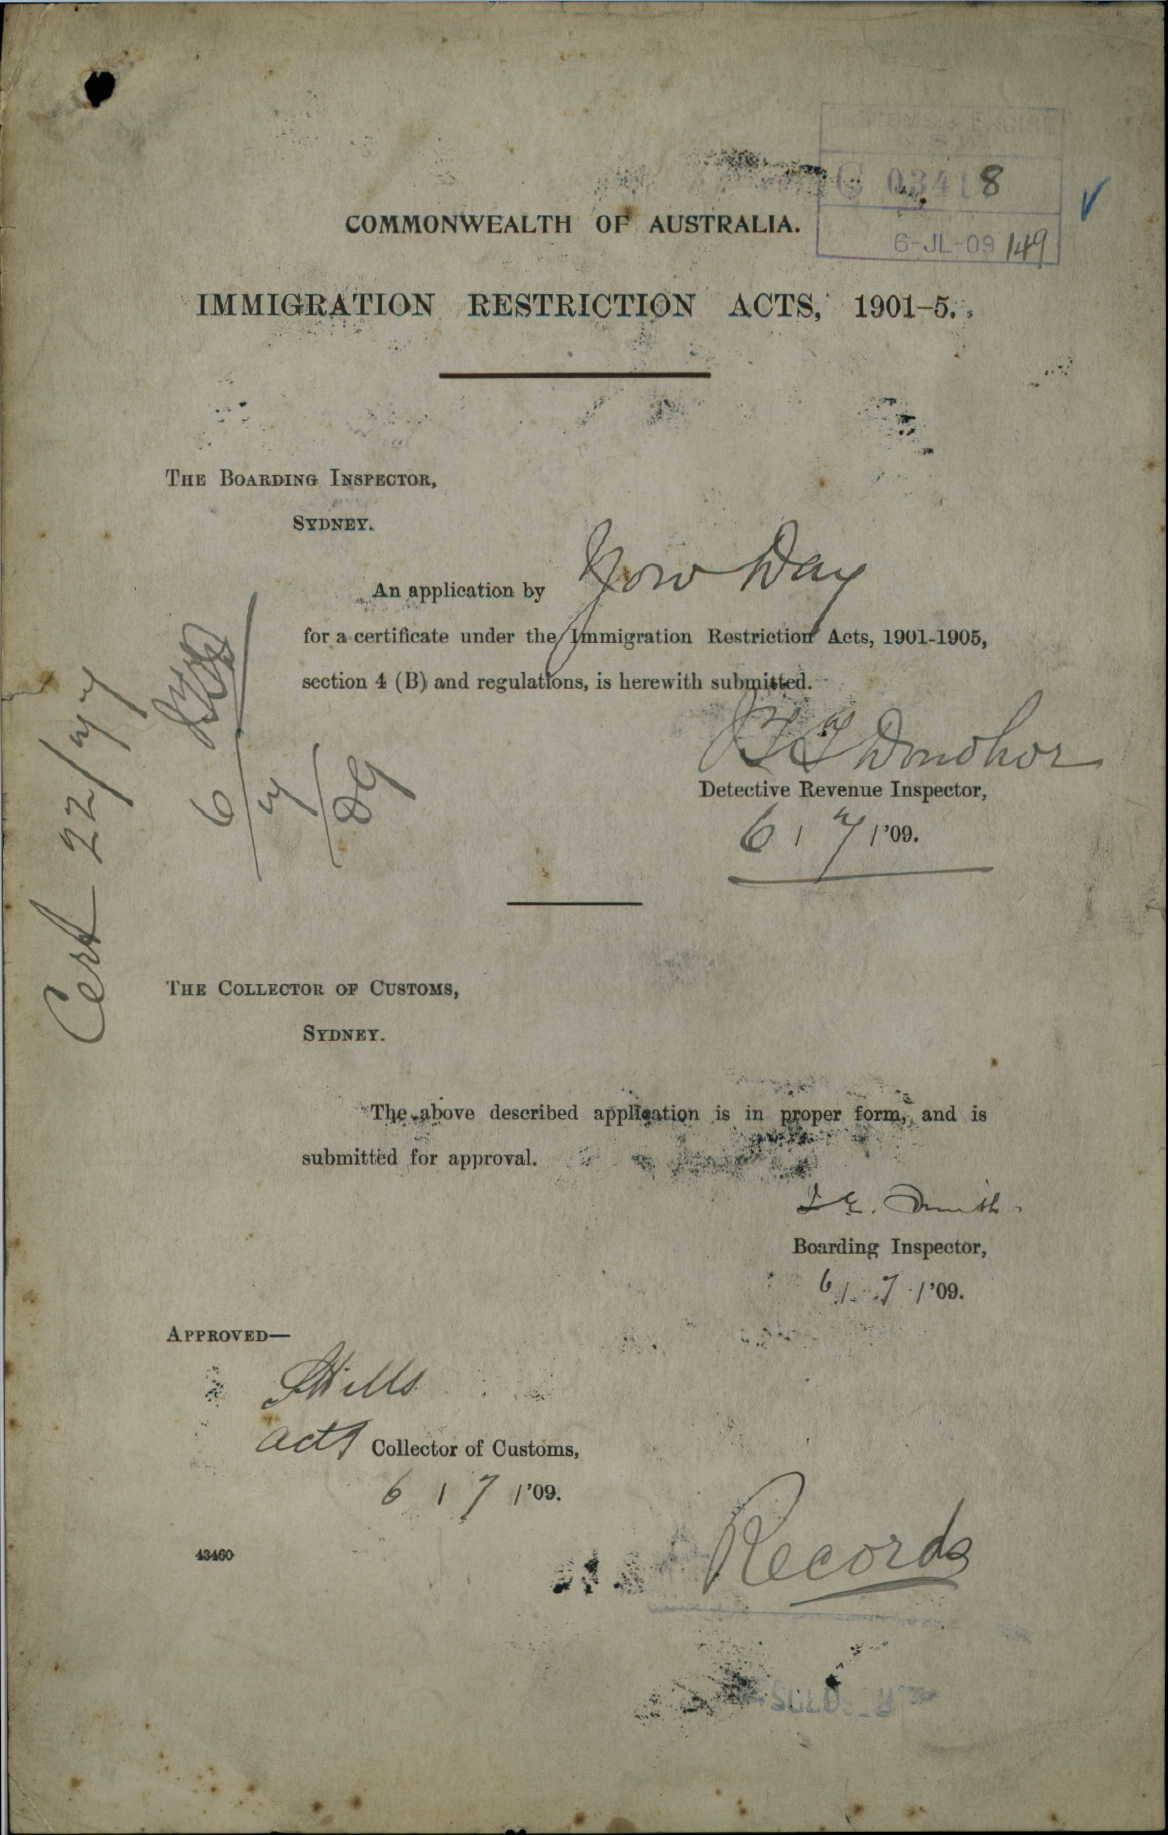 C 03418
6-JL-09 149
COMMONWEALTH OF AUSTRALIA.
IMMIGRATION RESTRICTION ACTS, 1901-5.
THE BOARDING INSPECTOR,
SYDNEY.
An application by Yow Day
for a certificate under the Immigration Restriction Acts, 1901-1905,
section 4 (B) and regulations, is herewith submitted.
Donohoe
Detective Revenue Inspector,
6/7/'09.
6/7/09
Cert 22/77
THE COLLECTOR OF CUSTOMS,
SYDNEY.
The above described application is in proper form, and is
submitted for approval.
Smith
Boarding Inspector,
6/7/'09.
APPROVED—
Mills
actg Collector of Customs,
6/7/'09.
43460
Records